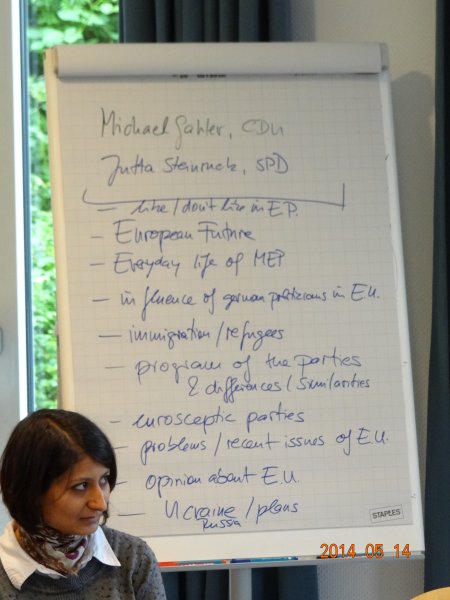 Michael Gahler, CDU
Jutta Steinruck, SPD
- like / don't like in E.P.
- European Future
- Everyday life of MEP
- influence of german politicians in E.U.
- immigration / refugees
- program of the parties
2 differences / Similarities
- eurosceptic parties
- problems / recent issues of E.U.
- opinion about E.U.
- Ucraine / plans
Russia
STAPLES
2014 05 14